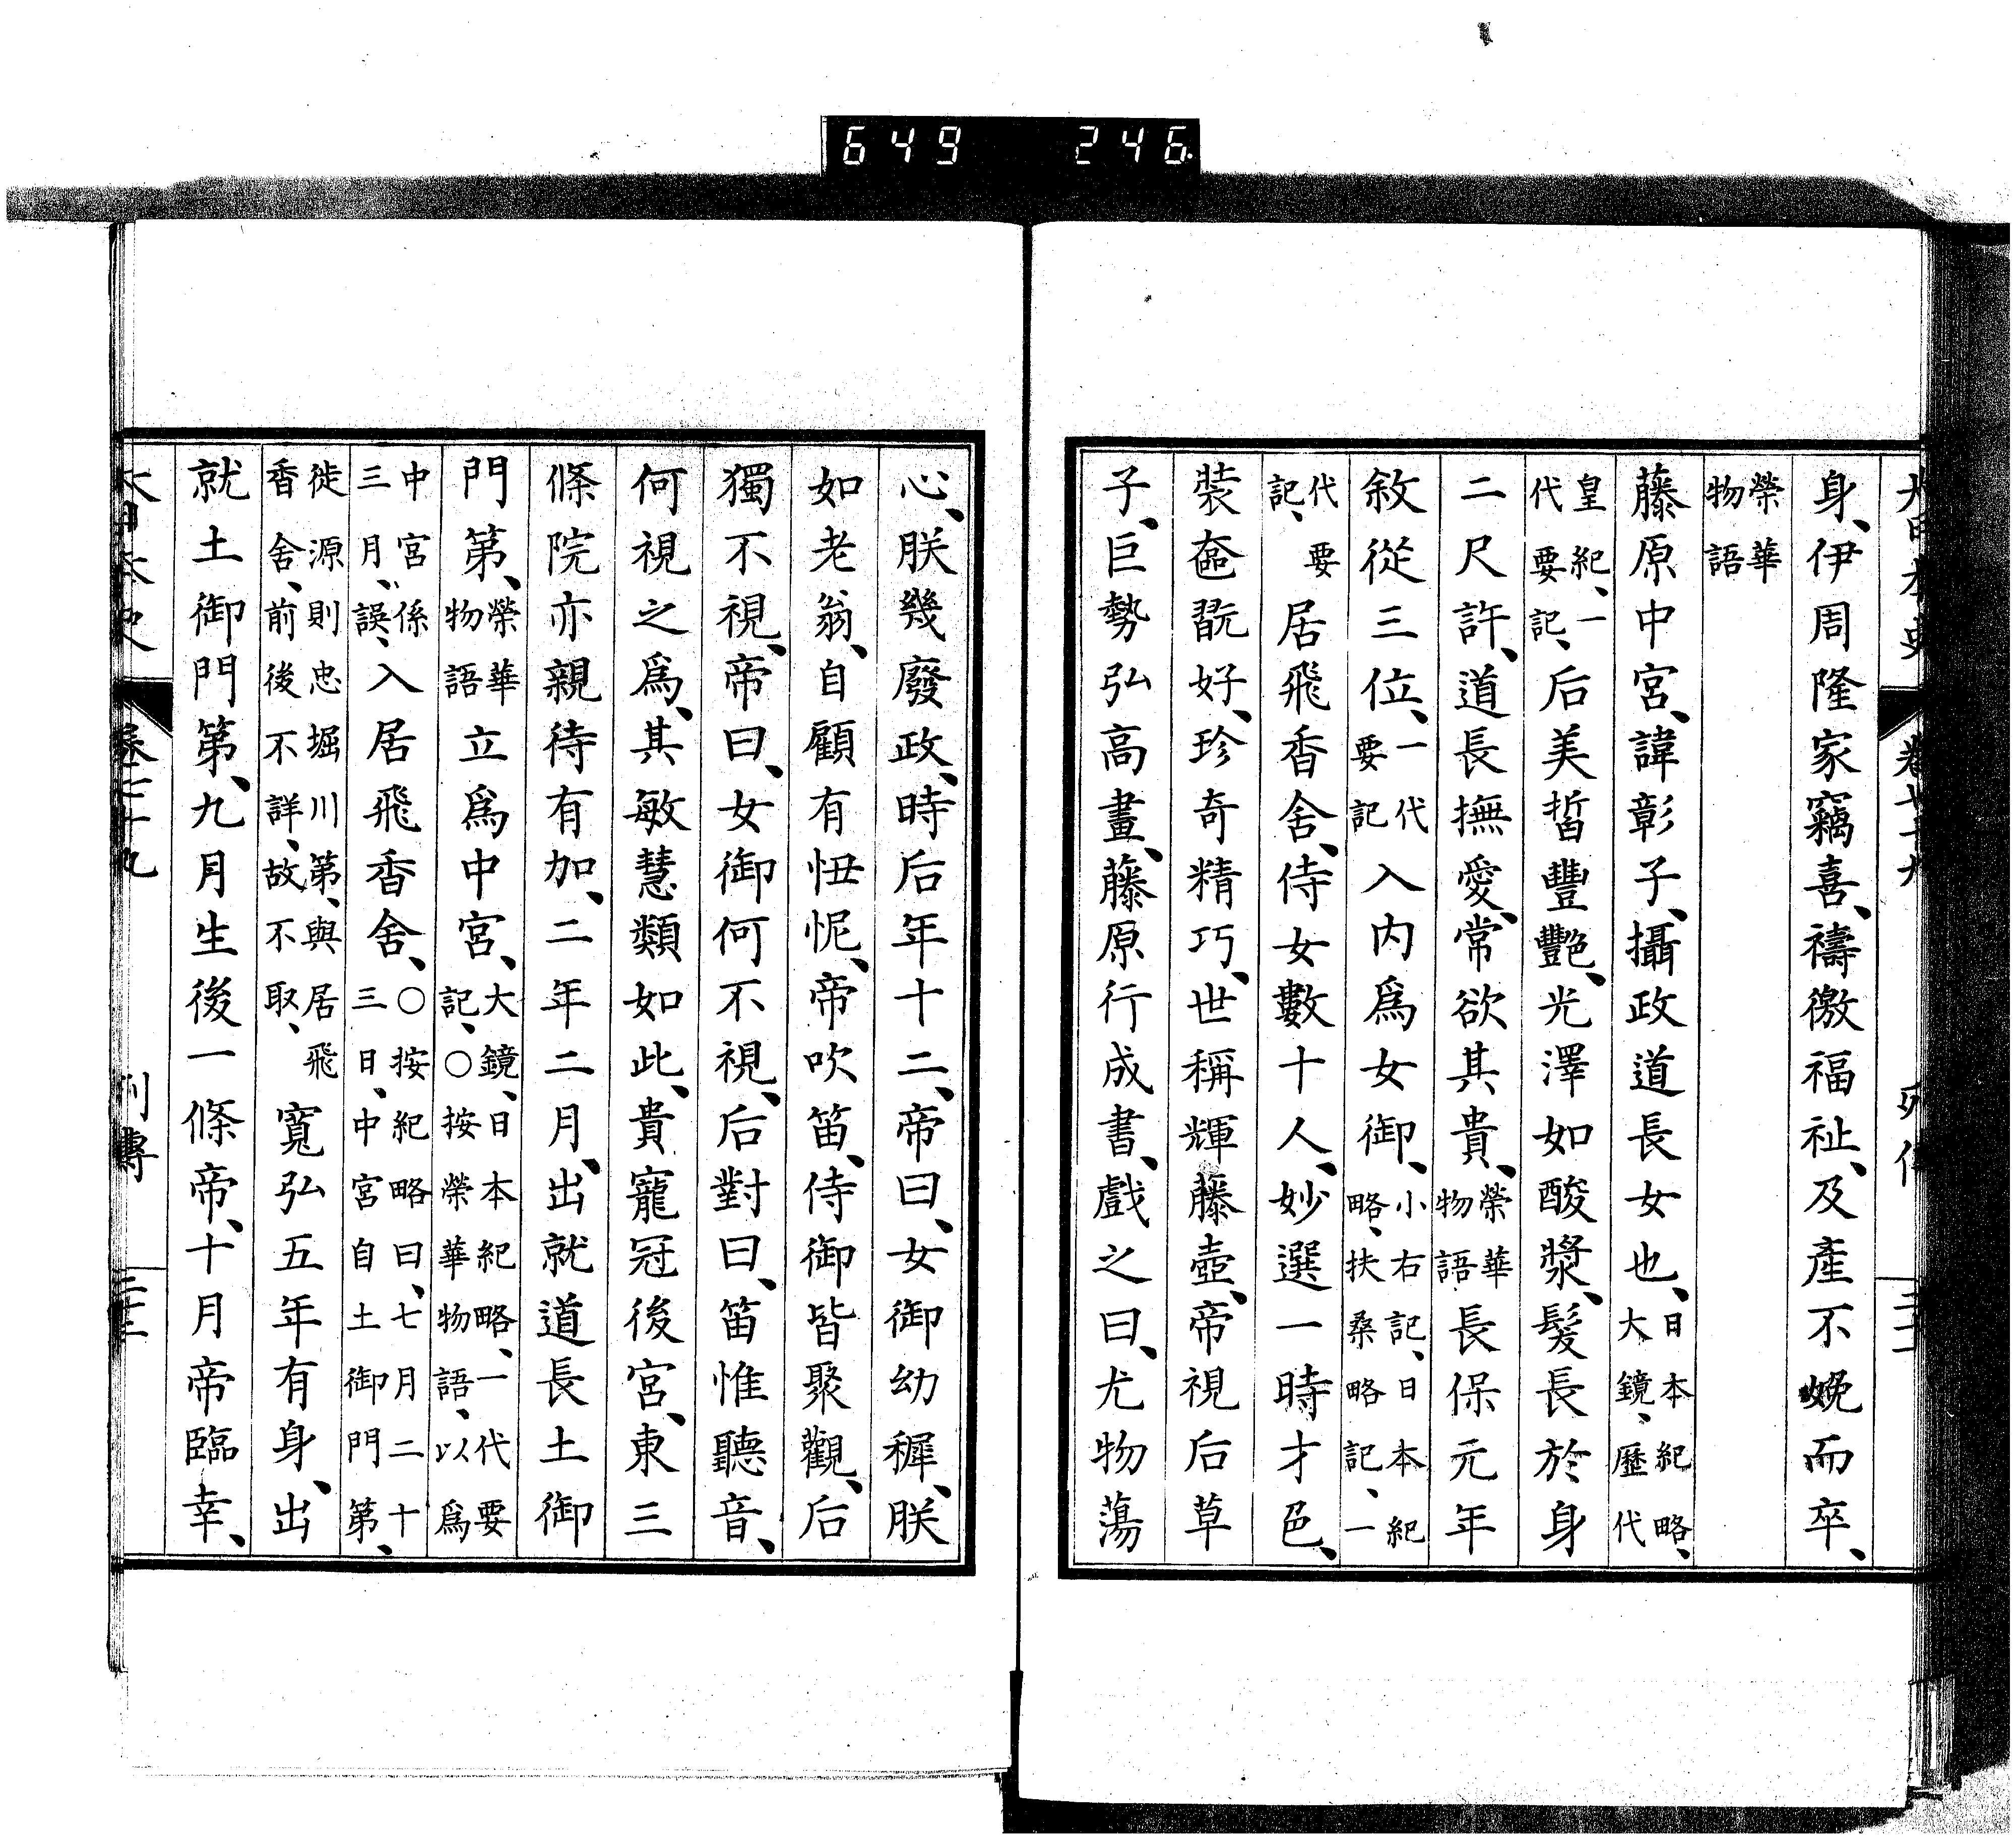 649 246
大日本史 卷七十九 列傳
身、伊周隆家竊喜、禱徼福祉、及產不娩而卒、
榮華
物語
藤原中宮、諱彰子、攝政道長女也、日本紀略、
大鏡、歷代
皇紀、一
代要記、后美晳豐艷、光澤如酸漿、髮長於身
二尺許、道長撫愛、常欲其貴、榮華
物語長保元年
敘從三位、一代
要記入内爲女御、小右記、日本紀
略、扶桑略記、一
代要
記、居飛香舍、侍女數十人、妙選一時才色、
裝奩翫好、珍奇精巧、世稱輝藤壺、帝視后草
子、巨勢弘高畫、藤原行成書、戲之曰、尤物蕩
心、朕幾廢政、時后年十二、帝曰、女御幼穉、朕
如老翁、自顧有忸怩、帝吹笛、侍御皆聚觀、后
獨不視、帝曰、女御何不視、后對曰、笛惟聽音、
何視之爲、其敏慧類如此、貴寵冠後宮、東三
條院亦親待有加、二年二月、出就道長土御
門第、榮華
物語立爲中宮、大鏡、日本紀略、一代要
記、○按榮華物語、以爲
中宮係
三月、誤、入居飛香舍、○按紀略曰、七月二十
三日、中宮自土御門第、
徙源則忠堀川第、與居飛
香舍、前後不詳、故不取、寬弘五年有身、出
就土御門第、九月生後一條帝、十月帝臨幸、
大日本史 卷七十九 列傳